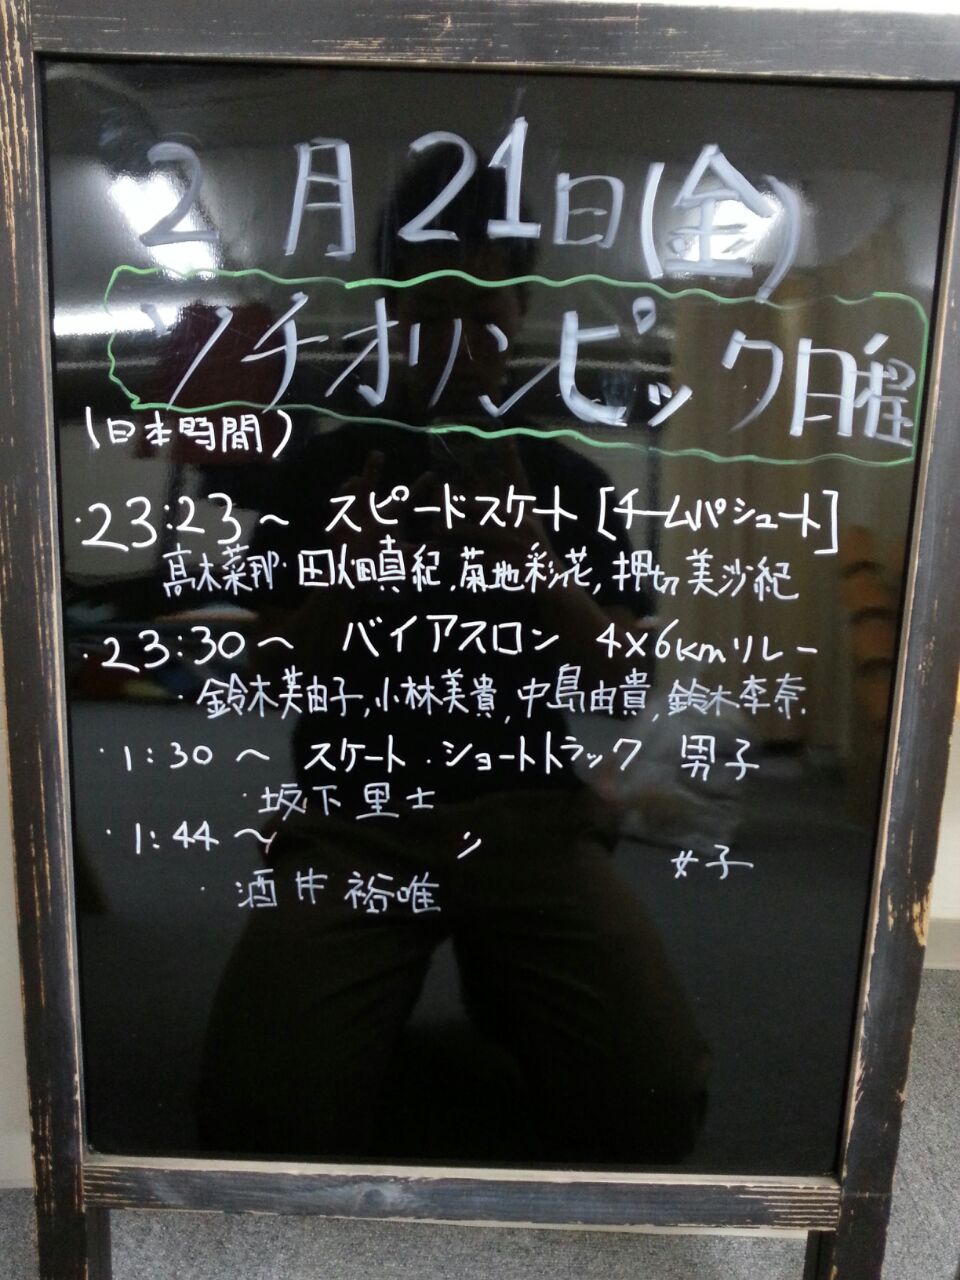 2月21日(金)
ソチオリンピック日程
(日本時間)
・23:23～ スピードスケート[チームパシュート]
高木菜那・田畑真紀,菊池彩花,押切美沙紀
・23:30～ バイアスロン 4×6kmリレー
・鈴木芙由子,小林美貴,中島由貴,鈴木李奈
・1:30～ スケート・ショートトラック 男子
・坂下里士
・1:44～ 〃 女子
・酒井裕唯